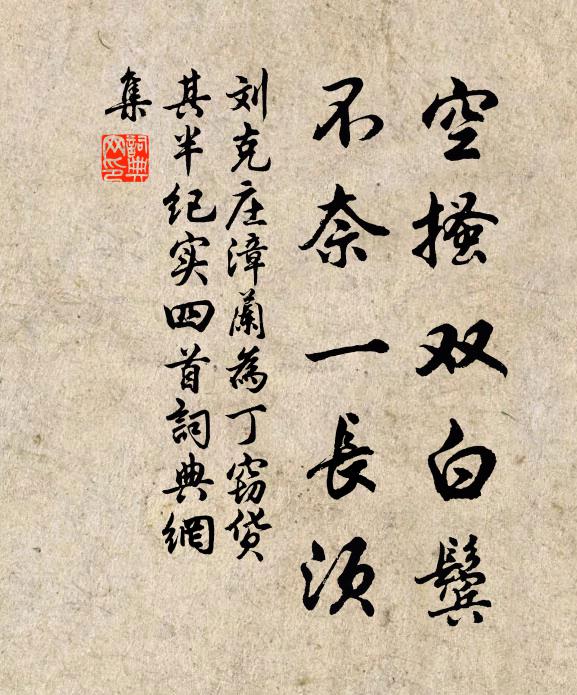 空搔双白鬓
不奈一長须
刘克庄漳蘭為丁窃貨
其半纪实四首詞典網
集
詞典網印